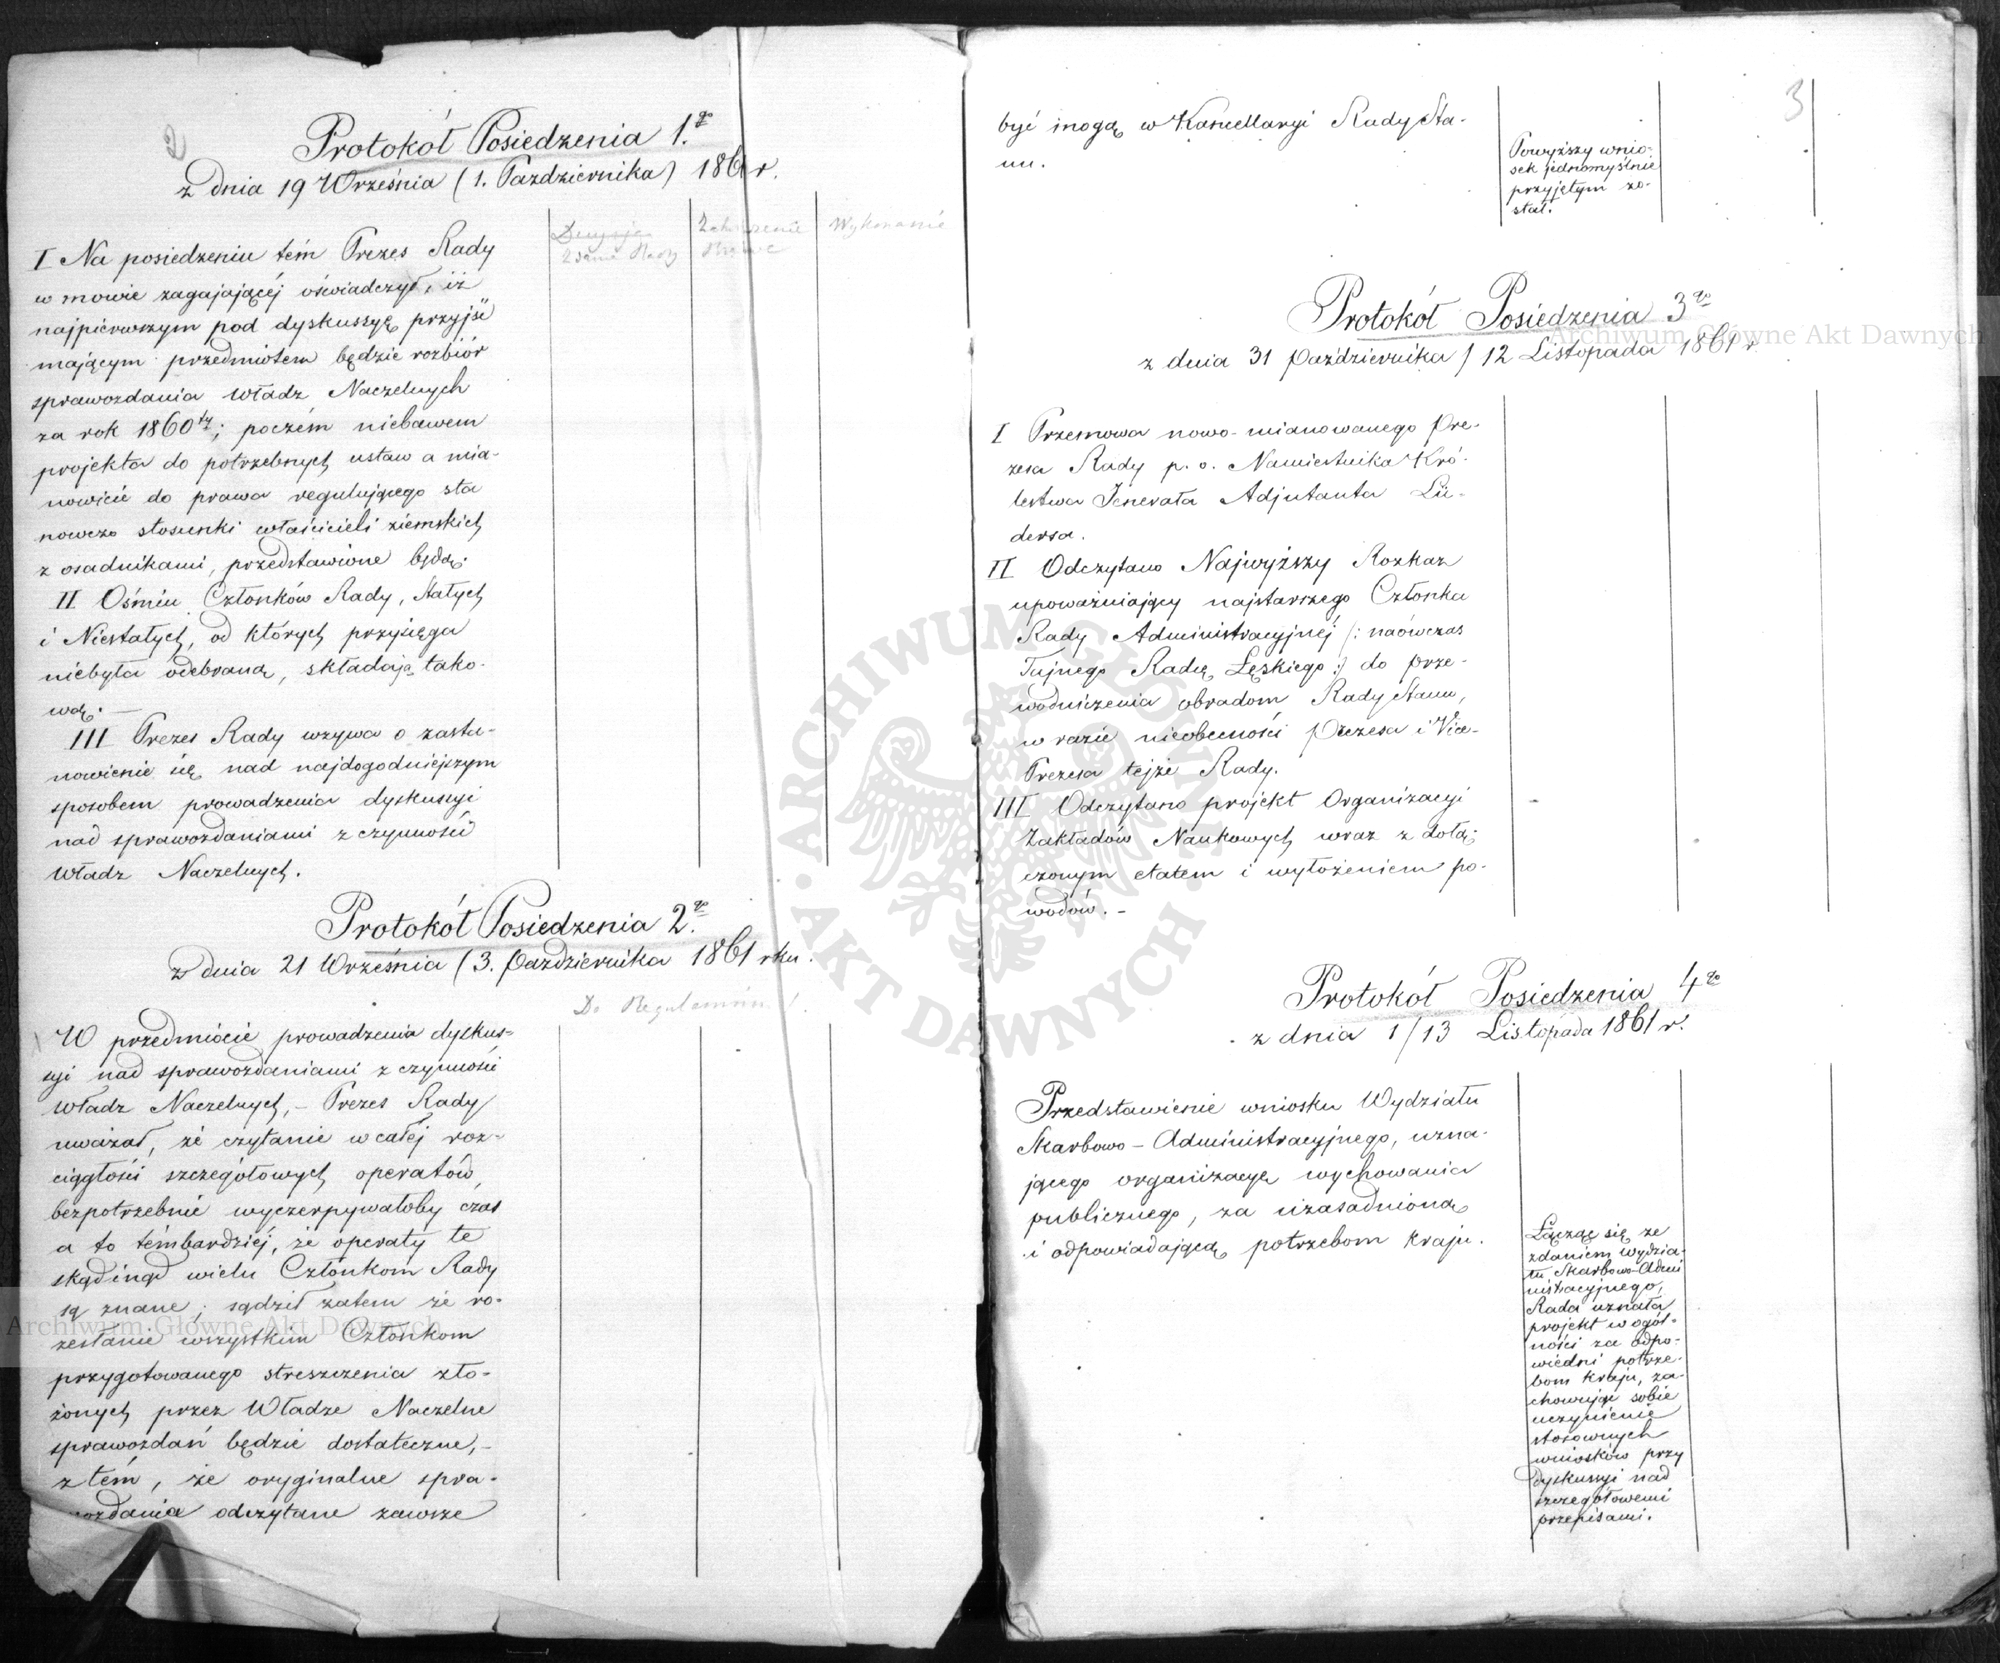 2
Protokół Posiedzenia 1.go
z dnia 19 Września (1. Października) 1861 r.
Zdanie Rady
Wykonanie
I Na posiedzeniu tém Prezes Rady
w mowie zagajającéj oświadczył, iż
najpierwszym pod dyskussyę przyjść
mającym przedmiotem będzie rozbiór
sprawozdania Władz Naczelnych
za rok 1860ty; poczém niebawem
projekta do potrzebnych ustaw a mia-
nowicie do prawa regulującego sta
nowczo stosunki właścicieli ziemskich
z osadnikami, przedstawione będą.
II Ośmiu Członków Rady, Stałych
i Niestałych, od których przysięga
niebyła odebraną, składają tako-
wą. —
III Prezes Rady wzywa o zasta-
nowienie się nad najdogodniejszym
sposobem prowadzenia dyskussyi
nad sprawozdaniami z czynności
Władz Naczelnych.
Protokół Posiedzenia 2.go
z dnia 21 Września (3. Października 1861 rku.
Do Regulaminu
W przedmiocie prowadzenia dyskus-
syi nad sprawozdaniami z czynności
Władz Naczelnych, – Prezes Rady
uważał, że czytanie w całéj roz-
ciągłości szczegółowych operatów,
bezpotrzebnie wyczerpywałoby czas
a to témbardziéj, że operaty te
skądinąd wielu Członkom Rady
są znane; sądził zatem że ro-
zesłanie wszystkim Członkom
przygotowanego streszczenia zło-
żonych przez Władze Naczelne
sprawozdań będzie dostateczne, –
z tém, że oryginalne spra-
wozdania odczytane zawsze
3
być mogą w Kancellaryi Rady Sta-
nu.
Powyższy wnio-
sek jednomyślnie
przyjętym zo-
stał.
Protokół Posiedzenia 3go
z dnia 31 Października / 12 Listopada 1861 r
I Przemowa nowo-mianowanego Pre-
zesa Rady p. o. Namiestnika Kró-
lestwa Jenerała Adjutanta Lü-
dersa.
II Odczytano Najwyższy Rozkaz
upoważniający najstarszego Członka
Rady Administracyjnéj /: naówczas
Tajnego Radcę Łęskiego :/ do prze-
wodniczenia obradom Rady Stanu,
w razie nieobecności Prezesa i Vice-
Prezesa tejże Rady.
III Odczytano projekt Organizacyi
Zakładów Naukowych wraz z dołą-
czonym etatem i wyłożeniem po-
wodów. –
Protokół Posiedzenia 4go
z dnia 1/13 Listopada 1861 r.
Przedstawienie wniosku Wydziału
Skarbowo-Administracyjnego, uzna-
jącego organizacyę wychowania
publicznego, za uzasadnioną
i odpowiadającą potrzebom kraju.
Łącząc się ze
zdaniem Wydzia-
łu Skarbowo-Admi
nistracyjnego,
Rada uznała
projekt w ogól-
ności za odpo-
wiedni potrze-
bom kraju, za-
chowując sobie
uczynienie
stosownych
wniosków przy
dyskussyi nad
szczegółowemi
przepisami.
Archiwum Główne Akt Dawnych
Archiwum Główne Akt Dawnych
ARCHIWUM GŁÓWNE
AKT DAWNYCH